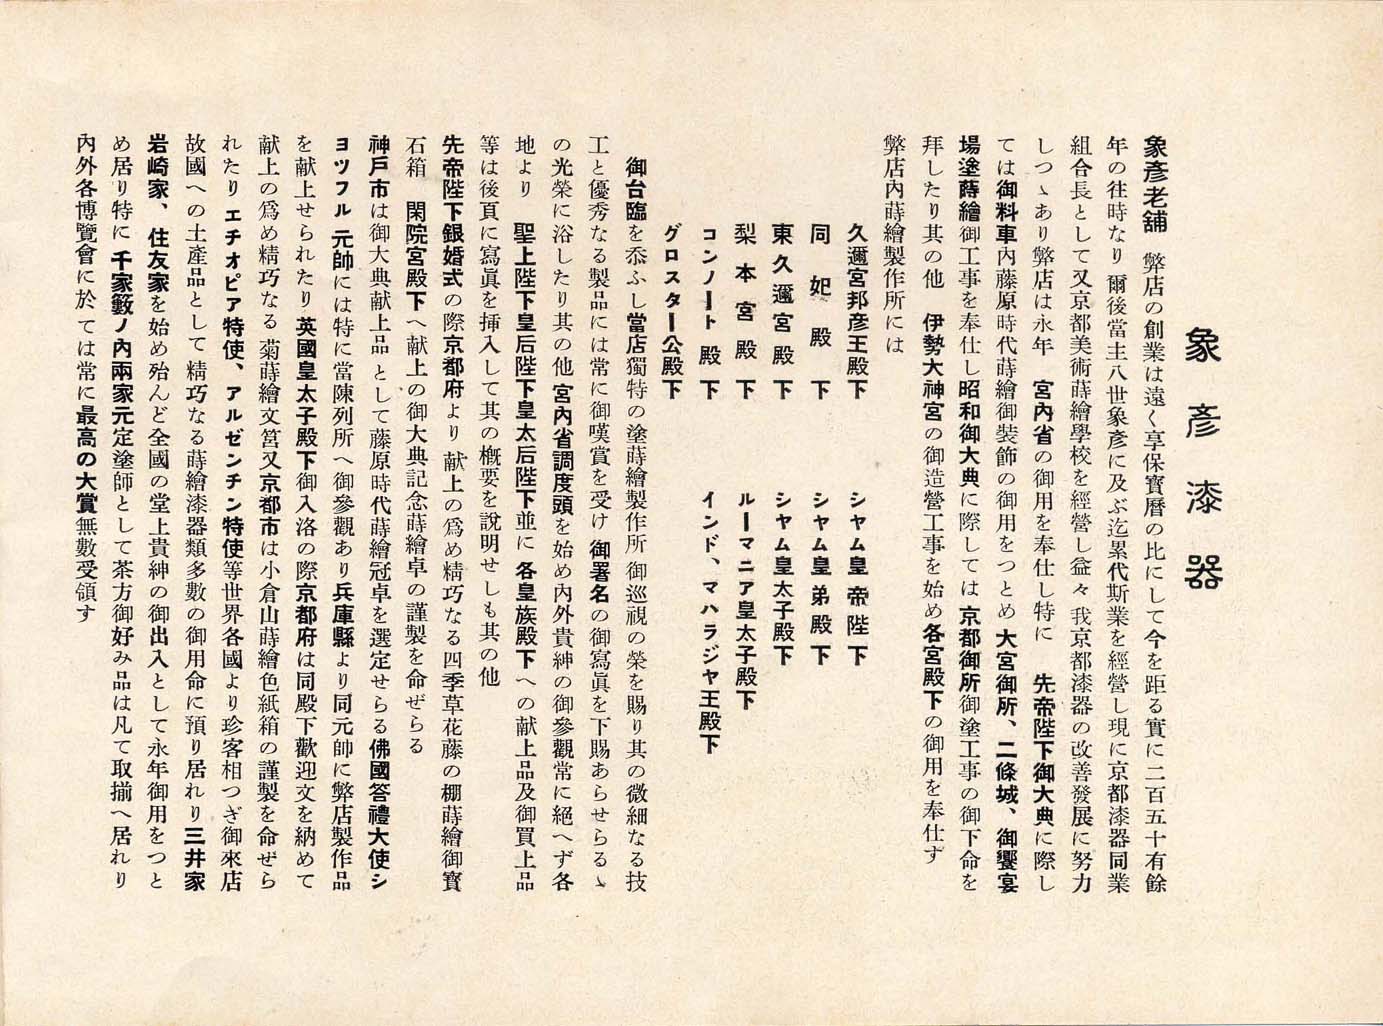 象彥漆器
象彥老舖　弊店の創業は遠く享保寳曆の比にして今を距る實に二百五十有餘
年の往時なり爾後當主八世象彥に及ぶ迄累代斯業を經營し現に京都漆器同業
組合長として又京都美術蒔繪學校を經營し益々我京都漆器の改善發展に努力
しつゝあり弊店は永年　宮內省の御用を奉仕し特に　先帝陛下御大典に際し
ては御料車內藤原時代蒔繪御裝飾の御用をつとめ大宮御所、二條城、御饗宴
場塗蒔繪御工事を奉仕し昭和御大典に際しては京都御所御塗工事の御下命を
拜したり其の他　伊勢大神宮の御造營工事を始め各宮殿下の御用を奉仕す
弊店內蒔繪製作所には
久邇宮邦彦王殿下　シヤム皇帝陛下
同妃殿下　シヤム皇弟殿下
東久邇宮殿下　シヤム皇太子殿下
梨本宮殿下　ルーマニア皇太子殿下
コンノート殿下　インド、マハラジヤ王殿下
グロスター公殿下
御台臨を忝ふし當店獨特の塗蒔繪製作所御巡視の榮を賜り其の微細なる技
工と優秀なる製品には常に御嘆賞を受け御署名の御寫眞を下賜あらせらるゝ
の光榮に浴したり其の他宮內省調度頭を始め內外貴紳の御參觀常に絕へず各
地より　聖上陛下皇后陛下皇太后陛下並に各皇族殿下への献上品及御買上品
等は後頁に寫眞を揷入して其の槪要を說明せしも其の他
先帝陛下銀婚式の際京都府より献上の爲め精巧なる四季草花藤の棚蒔繪御寳
石箱　閑院宮殿下へ献上の御大典記念蒔繪卓の謹製を命ぜらる
神戶市は御大典献上品として藤原時代蒔繪冠卓を選定せらる佛國答禮大使シ
ヨツフル元帥には特に當陳列所へ御參觀あり兵庫縣より同元帥に弊店製作品
を献上せられたり英國皇太子殿下御入洛の際京都府は同殿下歡迎文を納めて
献上の爲め精巧なる菊蒔繪文筥又京都市は小倉山蒔繪色紙箱の謹製を命ぜら
れたりエチオピア特使、アルゼンチン特使等世界各國より珍客相つぎ御來店
故國への土產品として精巧なる蒔繪漆器類多數の御用命に預り居れり三井家
岩崎家、住友家を始め殆んど全國の堂上貴紳の御出入として永年御用をつと
め居り特に千家藪ノ內兩家元定塗師として茶方御好み品は凡て取揃へ居れり
內外各博覽會に於ては常に最高の大賞無數受領す